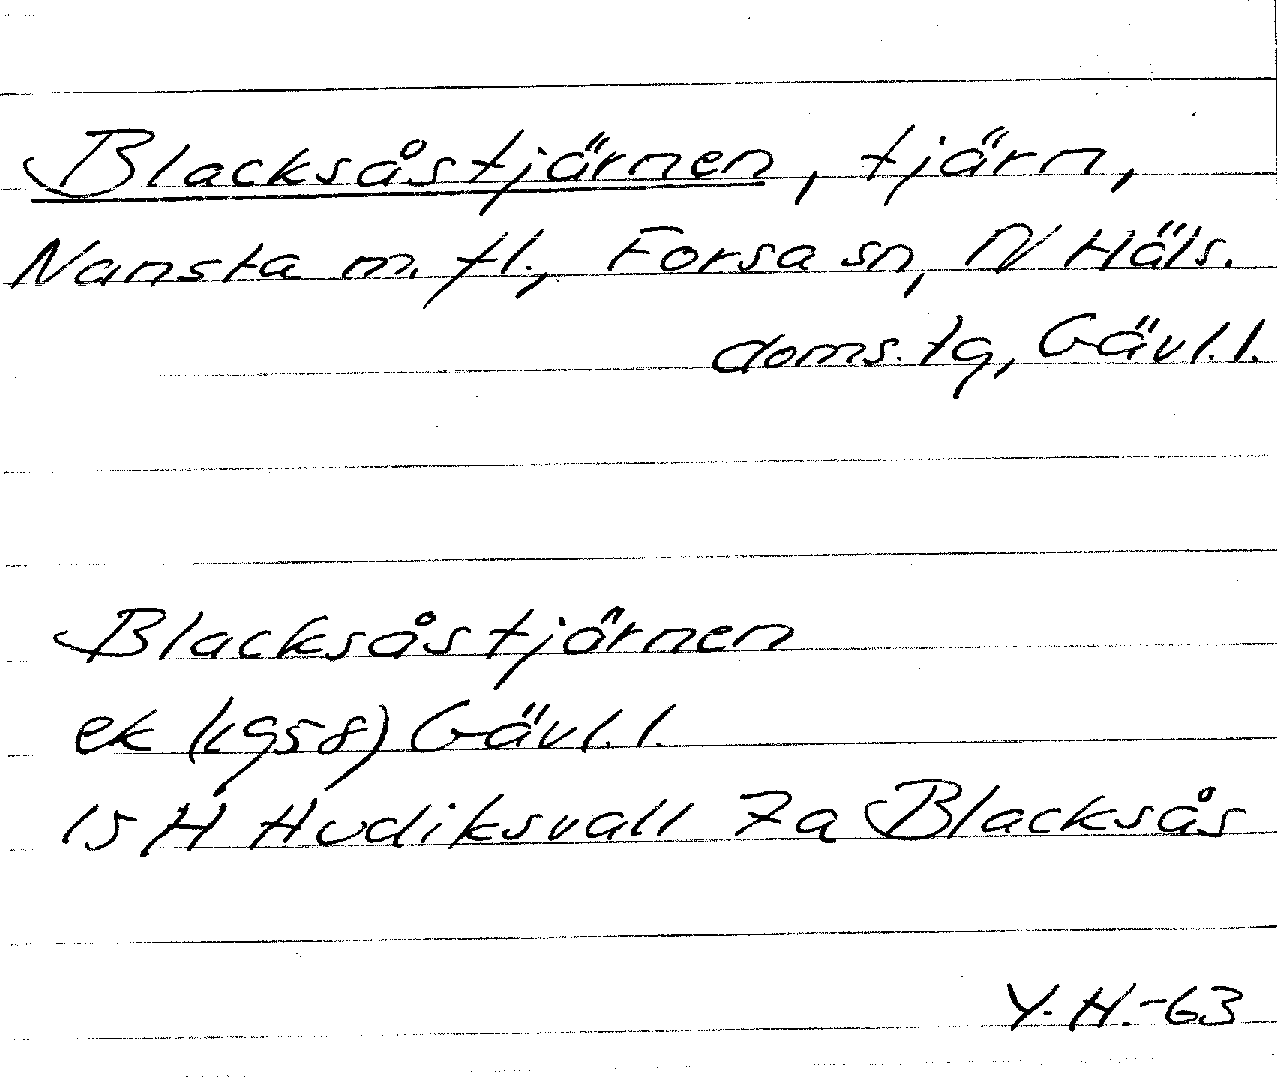 Blacksåstjärnen, tjärn,
Nansta m.fl., Forsa sn, N Häls.
doms.tg, Gävl.l.
Blacksåstjärnen
ek (1958) Gävl.l.
15 H Hudiksvall 7a Blacksås
Y.H.-63